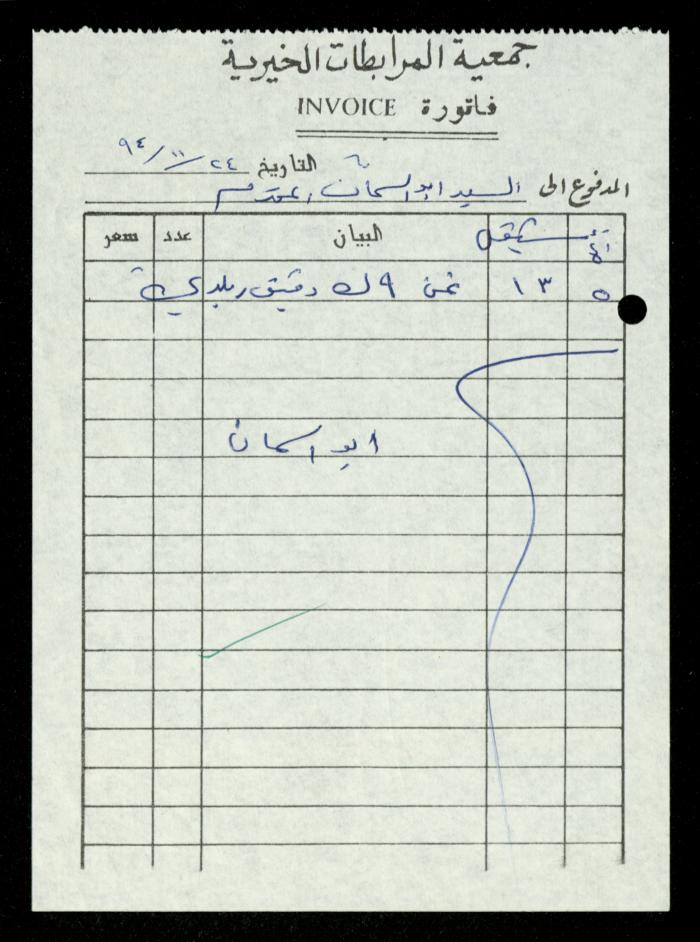 جمعية المرابطات الخيرية
فاتورة INVOICE
التاريخ ٢٤/١١/٩٤
المدفوع الى السيد ابو السمان المحترم
شيقل البيان عدد سعر
٥ ١٣ ثمن ٩ ك دقيق بلدي
ابو السمان